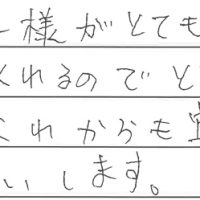 様がとても
くれるのでと
これからも
いします。